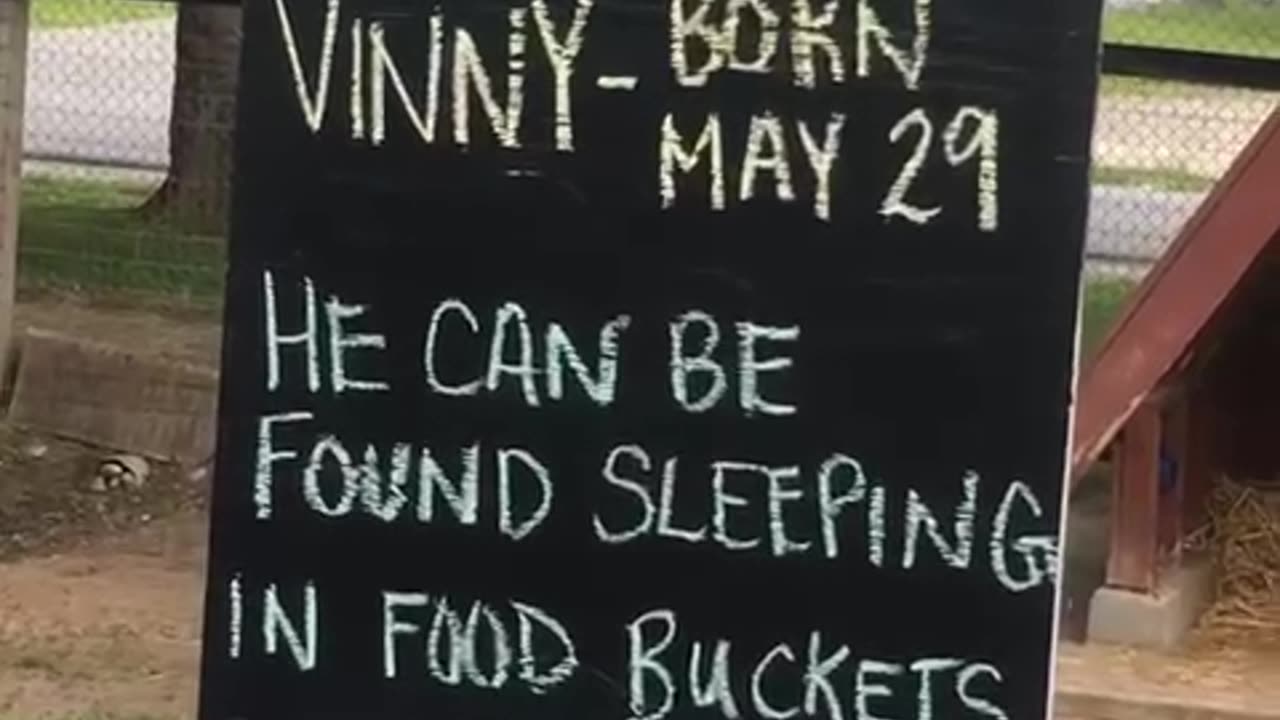 VINNY - BORN
MAY 29
HE CAN BE
FOUND SLEEPING
IN FOOD BUCKETS